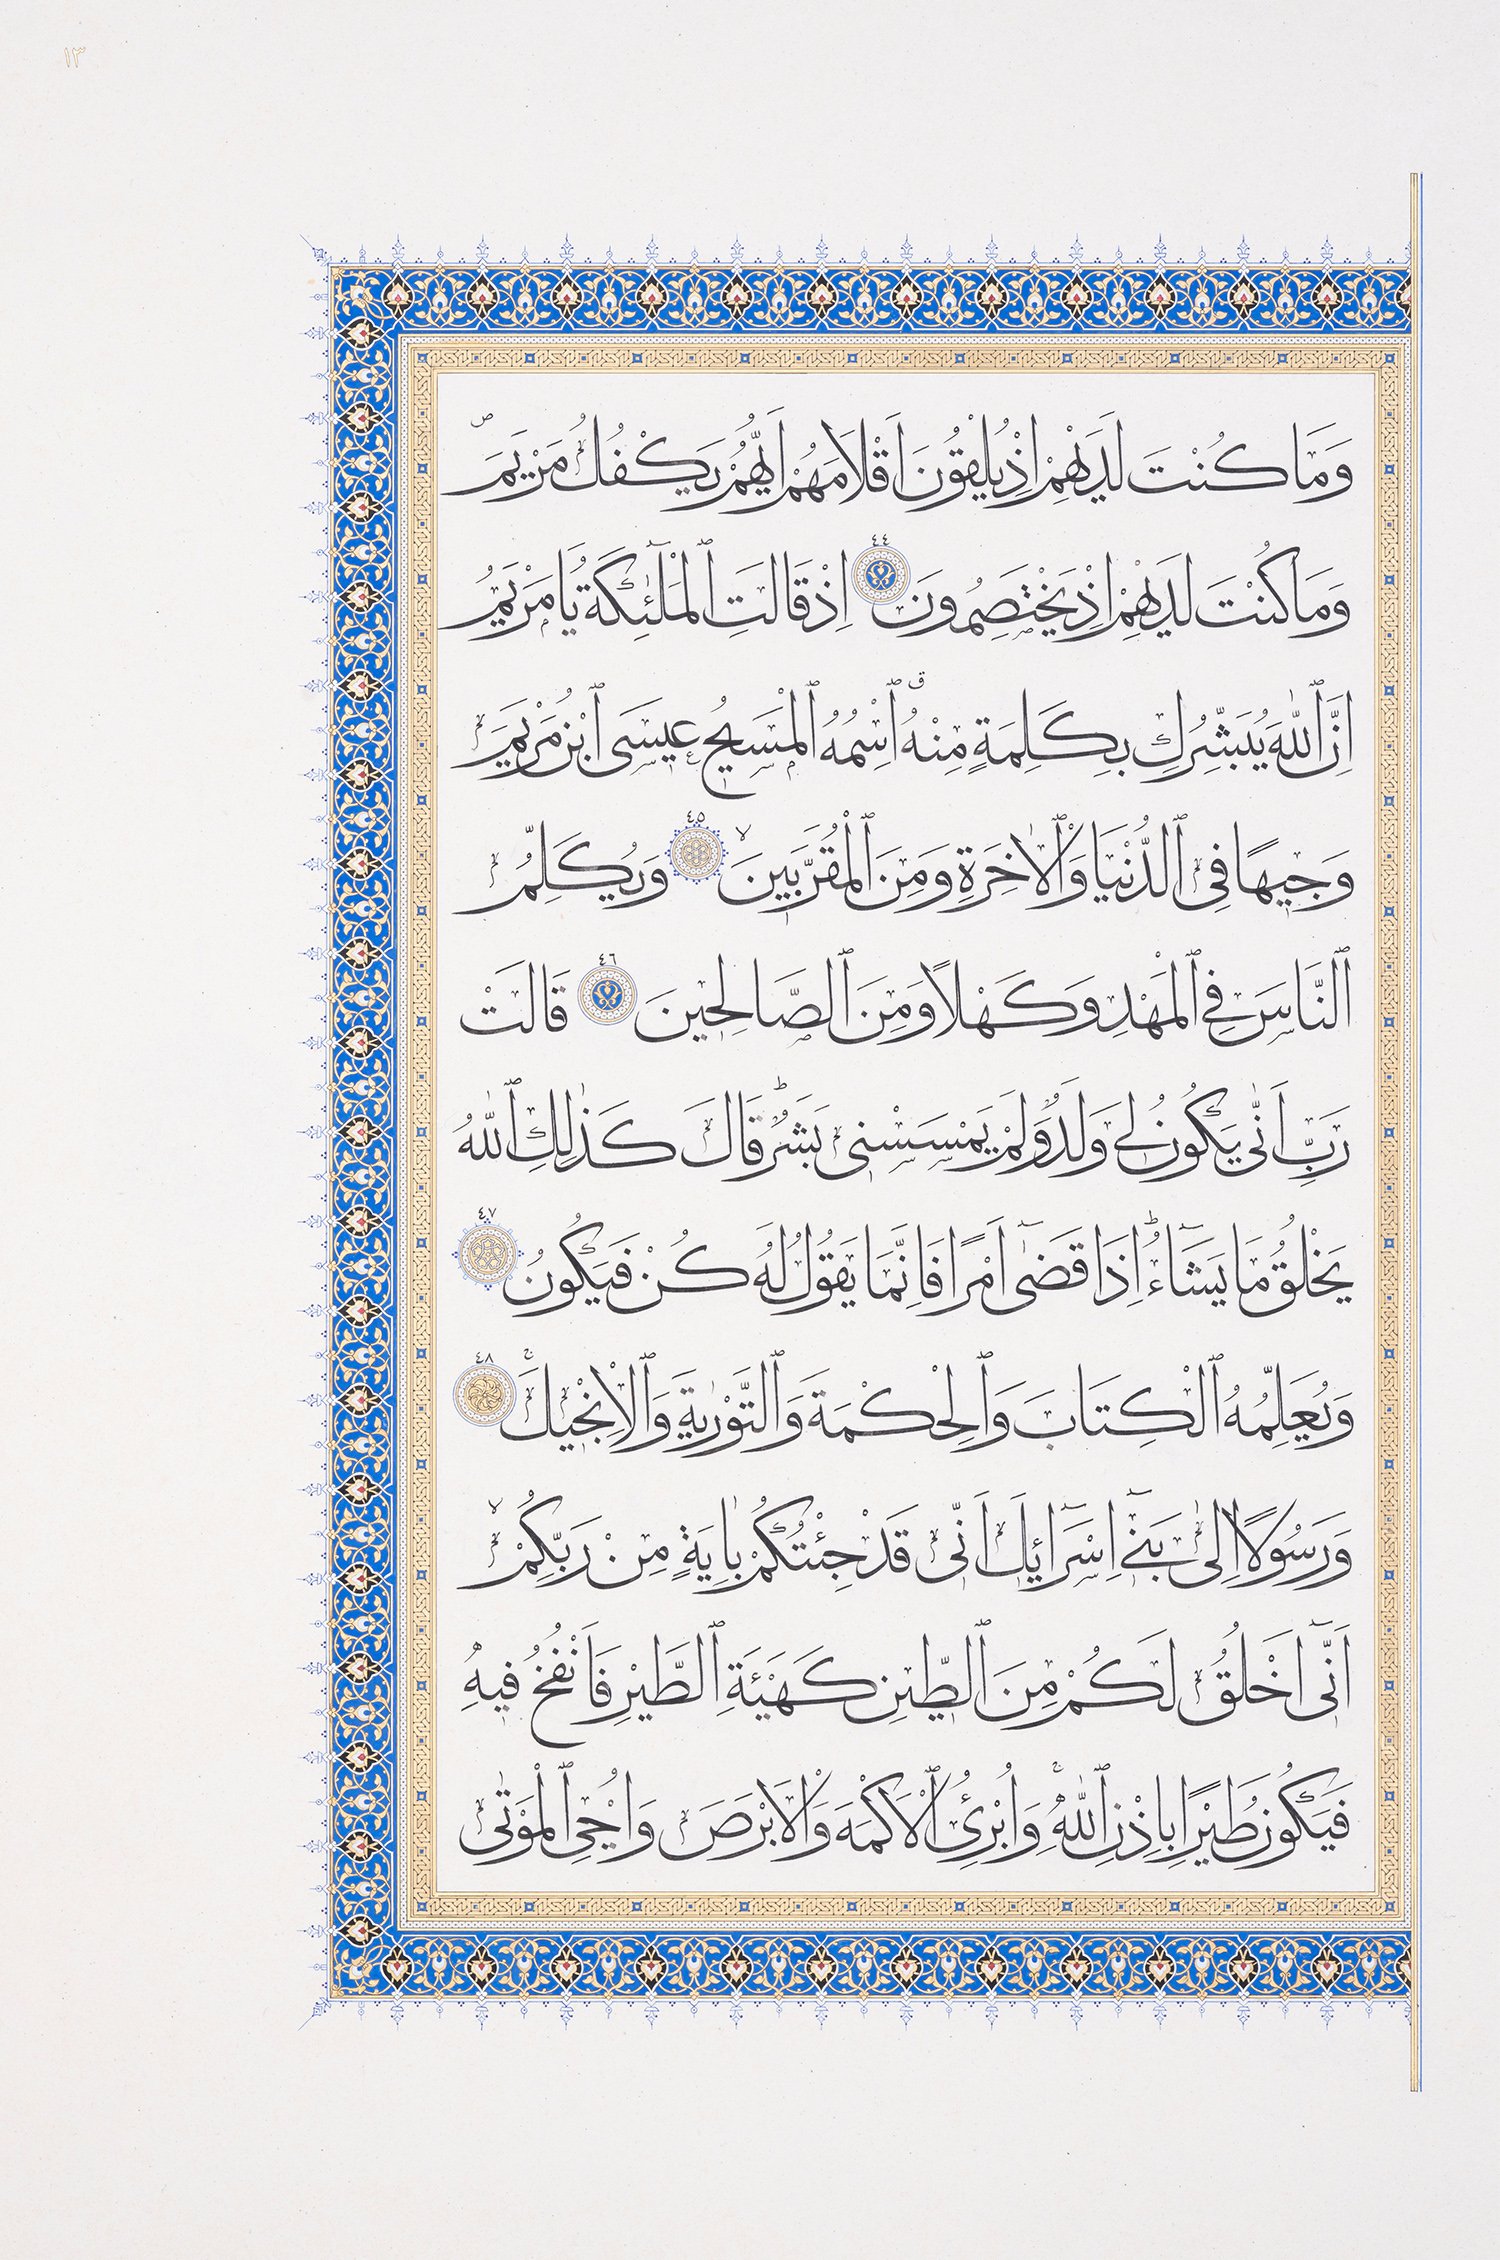 ١٣
وَمَا كُنْتَ لَدَيْهِمْ اِذْ يُلْقُونَ اَقْلَامَهُمْ اَيُّهُمْ يَكْفُلُ مَرْيَمَ ۖ
وَمَا كُنْتَ لَدَيْهِمْ اِذْ يَخْتَصِمُونَ ٤٤ اِذْ قَالَتِ ٱلْمَلٰٓئِكَةُ يَا مَرْيَمُ
اِنَّ ٱللّٰهَ يُبَشِّرُكِ بِكَلِمَةٍ مِنْهُ ۗ ٱسْمُهُ ٱلْمَسِيحُ عِيسَى ٱبْنُ مَرْيَمَ
وَجِيهًا فِي ٱلدُّنْيَا وَٱلْاٰخِرَةِ وَمِنَ ٱلْمُقَرَّبِينَ ۙ ٤٥ وَيُكَلِّمُ
ٱلنَّاسَ فِي ٱلْمَهْدِ وَكَهْلًا وَمِنَ ٱلصَّالِحِينَ ٤٦ قَالَتْ
رَبِّ اَنّٰى يَكُونُ لِي وَلَدٌ وَلَمْ يَمْسَسْنِي بَشَرٌ ؕ قَالَ كَذٰلِكِ ٱللّٰهُ
يَخْلُقُ مَا يَشَٓاءُ ؕ اِذَا قَضٰٓى اَمْرًا فَاِنَّمَا يَقُولُ لَهُ كُنْ فَيَكُونُ ٤٧
وَيُعَلِّمُهُ ٱلْكِتَابَ وَٱلْحِكْمَةَ وَٱلتَّوْرٰيةَ وَٱلْاِنْجِيلَ ۚ ٤٨
وَرَسُولًا اِلٰى بَنِٓي اِسْرَٓائِلَ اَنِّي قَدْ جِئْتُكُمْ بِاٰيَةٍ مِنْ رَبِّكُمْ ۙ
اَنِّٓي اَخْلُقُ لَكُمْ مِنَ ٱلطِّينِ كَهَيْئَةِ ٱلطَّيْرِ فَاَنْفُخُ فِيهِ
فَيَكُونُ طَيْرًا بِاِذْنِ ٱللّٰهِ ۚ وَاُبْرِئُ ٱلْاَكْمَهَ وَٱلْاَبْرَصَ وَاُحْيِ ٱلْمَوْتٰى